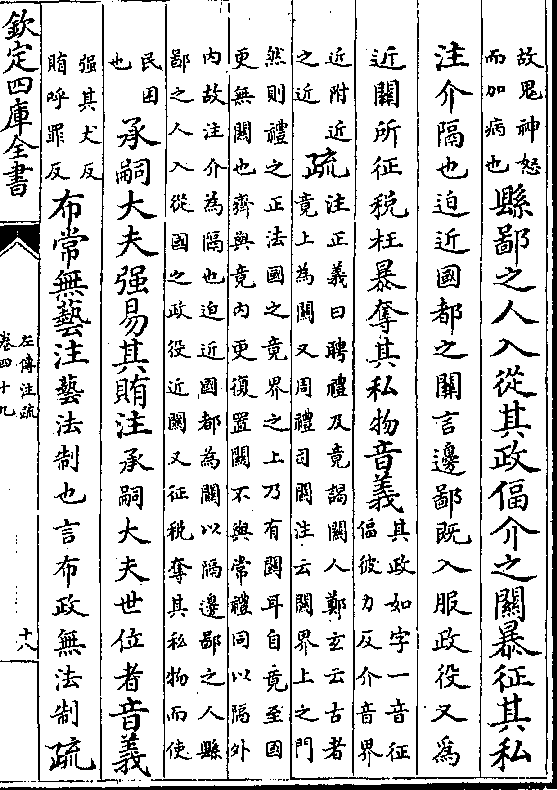 故鬼神怒
而加病也
縣鄙之人入從其政偪介之關暴征其私
注介隔也迫近國都之關言邊鄙既入服政役又為
近關所征税枉暴奪其私物音義
其政如字一音征
偪彼力反介音界
近附近
之近
疏
注正義曰聘禮及竟謁關人鄭玄云古者
竟上為關又周禮司關注云關界上之門
然則禮之正法國之竟界之上乃有關耳自竟至國
更無關也齊與竟内更復置關不與常禮同以隔外
内故注介為隔也迫近國都為關以隔邊鄙之人縣
鄙之人入從國之政役近關又征税奪其私物而使
民困
也
承嗣大夫强易其賄注承嗣大夫世位者音義
强其犬反
賄呼罪反
布常無藝注藝法制也言布政無法制疏
欽定四庫全書
左傳注疏
卷四十九
十八